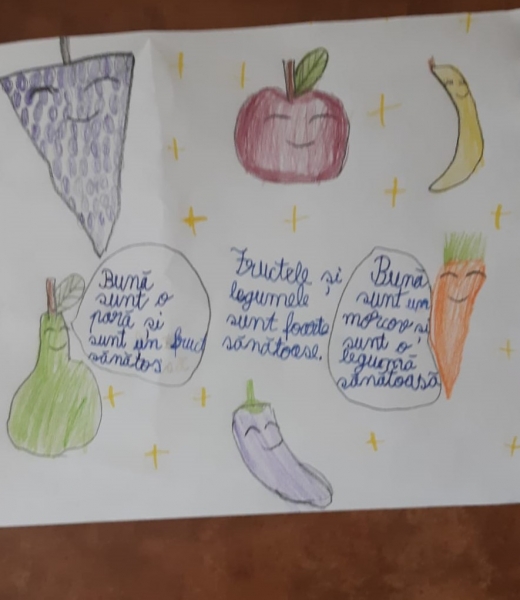 Bună
sunt o
pară și
sunt un fruct
sănătos
Fructele și
legumele
sunt foarte
sănătoase.
Bună
sunt un
morcov și
sunt o
legumă
sănătoasă